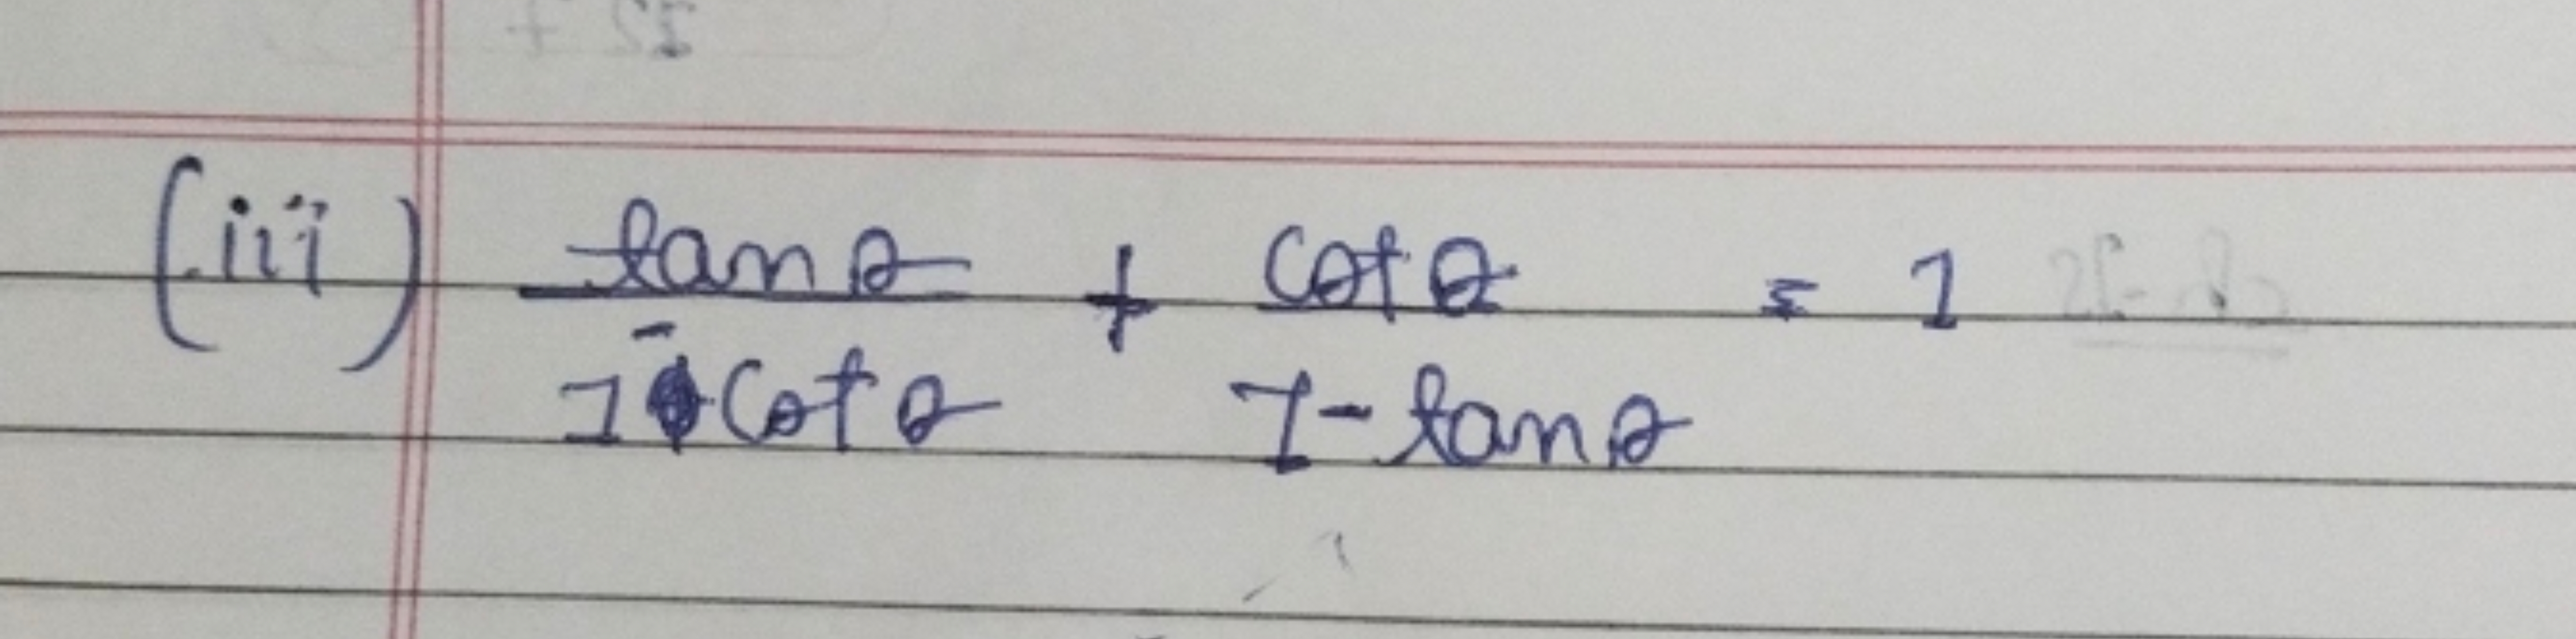 (iii) tanθ/(1-cotθ) + cotθ/(1-tanθ) = 1